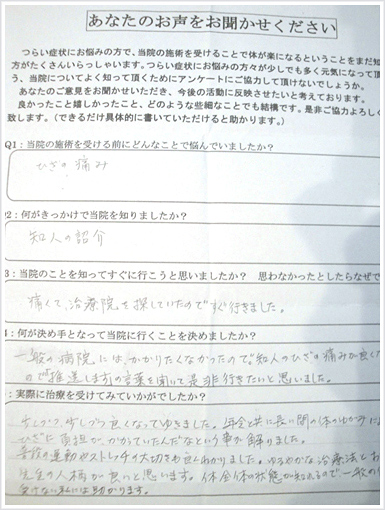 あなたのお声をお聞かせください
つらい症状にお悩みの方で、当院の施術を受けることで体が楽になるということをまだ知
方がたくさんいらっしゃいます。つらい症状にお悩みの方々が少しでも多く元気になって頂
う、当院についてよく知って頂くためにアンケートにご協力して頂けないでしょうか。
あなたのご意見をお聞かせいただき、今後の活動に反映させたいと考えております。
良かったこと嬉しかったこと、どのような些細なことでも結構です。是非ご協力よろしく
致します。（できるだけ具体的に書いていただけると助かります。）
Q1：当院の施術を受ける前にどんなことで悩んでいましたか？
ひざの痛み
2：何がきっかけで当院を知りましたか？
知人の紹介
3：当院のことを知ってすぐに行こうと思いましたか？ 思わなかったとしたらなぜで
痛くて、治療院を探していたのですぐ行きました。
4：何が決め手となって当院に行くことを決めましたか？
一般の病院にはかかりたくなかったので知人のひざの痛みが良く
ので推選しますの言葉を聞いて是非行きたいと思いました。
：実際に治療を受けてみていかがでしたか？
少しづつ、少しづつ良くなってゆきました。年令と共に長い間の体の
ひざに負担がかかっていたんだなという事が解りました。
普段の運動やストレッチの大切さも良くわかりました。ゆるやかな治療法と
先生の人柄が良いと思います。体全体の状態が知れるので一般の
受けない私には助かります。